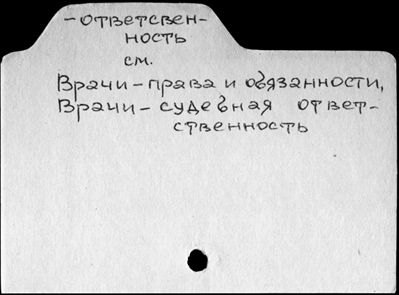 -ответсвен-
ность
см.
Врачи-права и обязанности,
Врачи-судебная ответ-
ственность